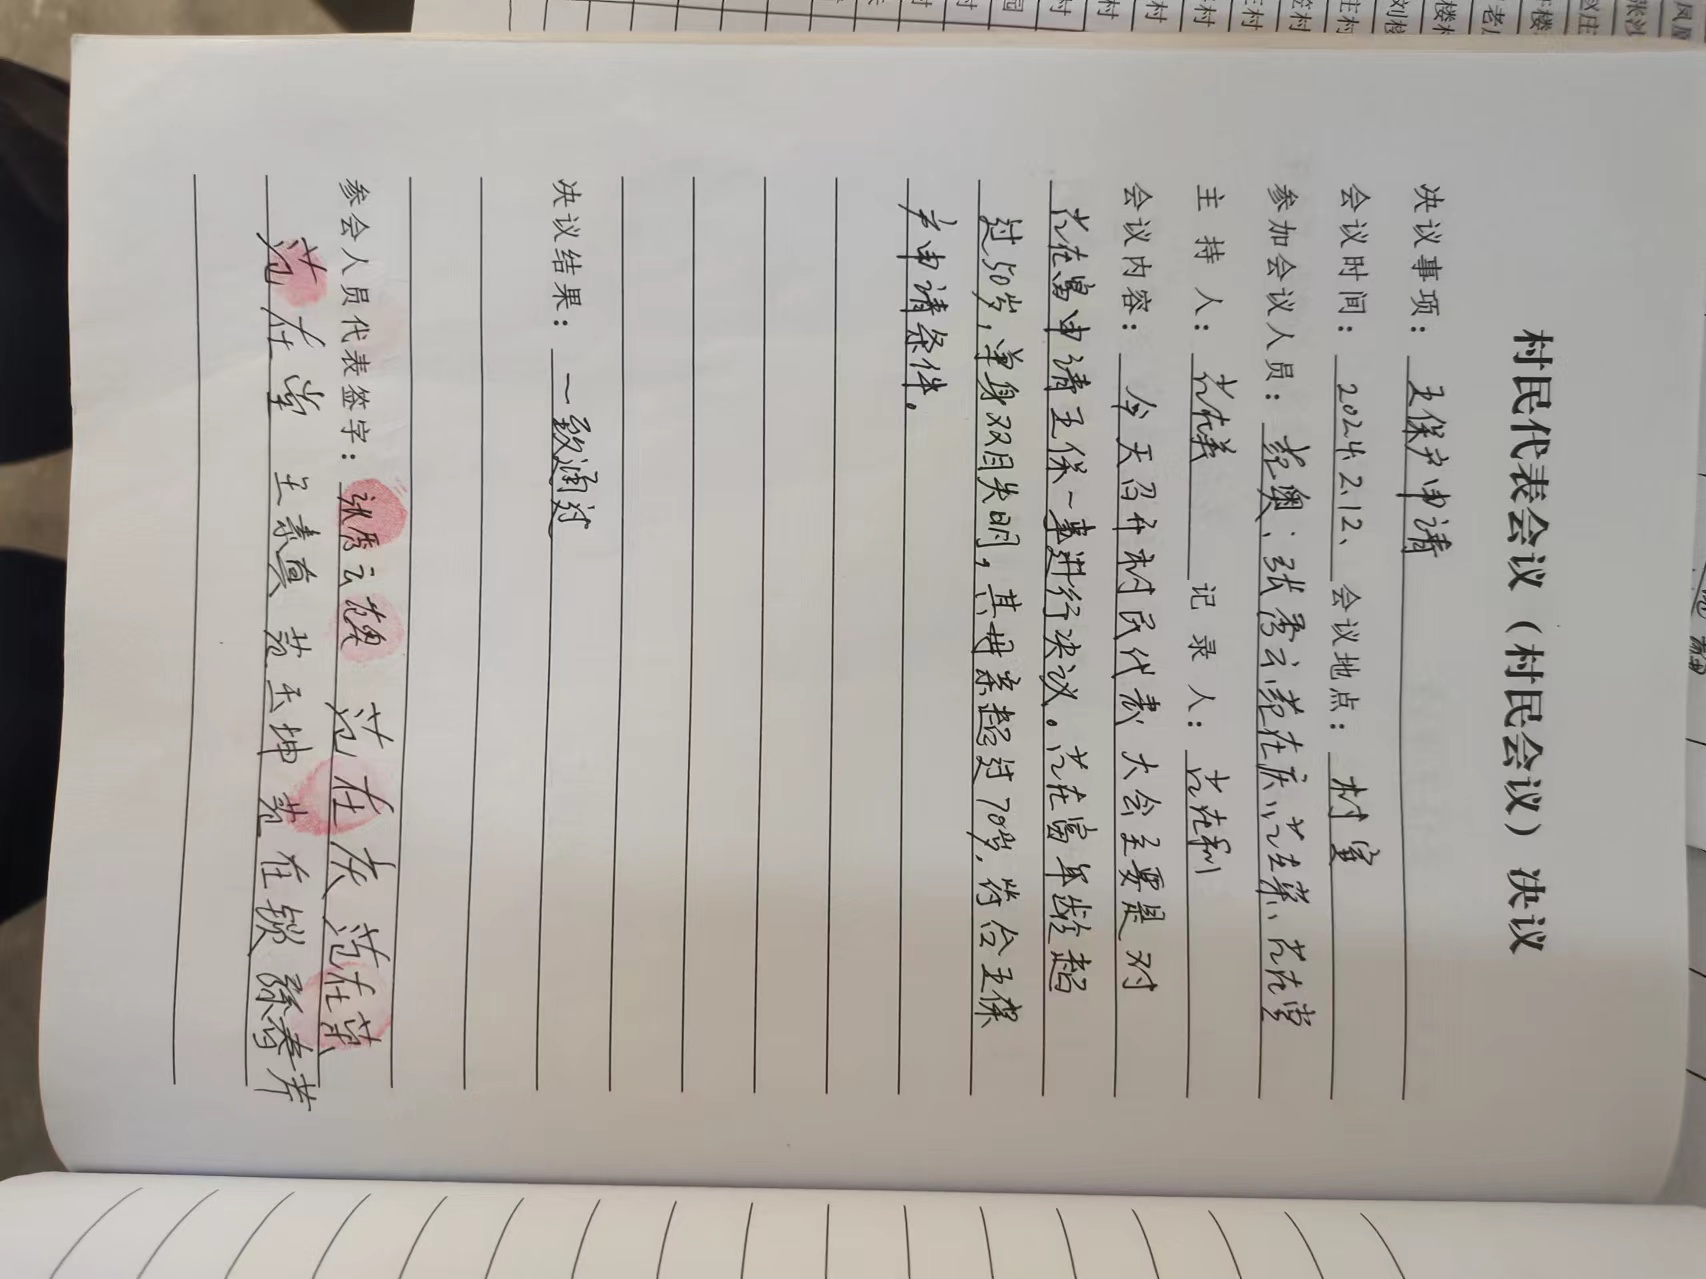 凤凰
张沙
赵庄
楼
老庄
楼村
刘楼
庄村
笠村
庄村
村
村
村
村
园
村
村
村民代表会议（村民会议）决议
决议事项：五保户申请
会议时间：2024.2.12、会议地点：村室
参加会议人员：范奥；张秀云、范在庆、范在荣、范在堂
主持人：范在美 记录人：范在利
会议内容：今天召开村民代表大会主要是对
范在富申请五保一事进行决议。范在富年龄超
过50岁，单身双目失明，其母亲超过70岁，符合五保
户申请条件。
决议结果：一致通过
参会人员代表签字：张秀云 范奥 范在庆 范在荣
范在堂 王素真 范玉坤 范在锁 春芹